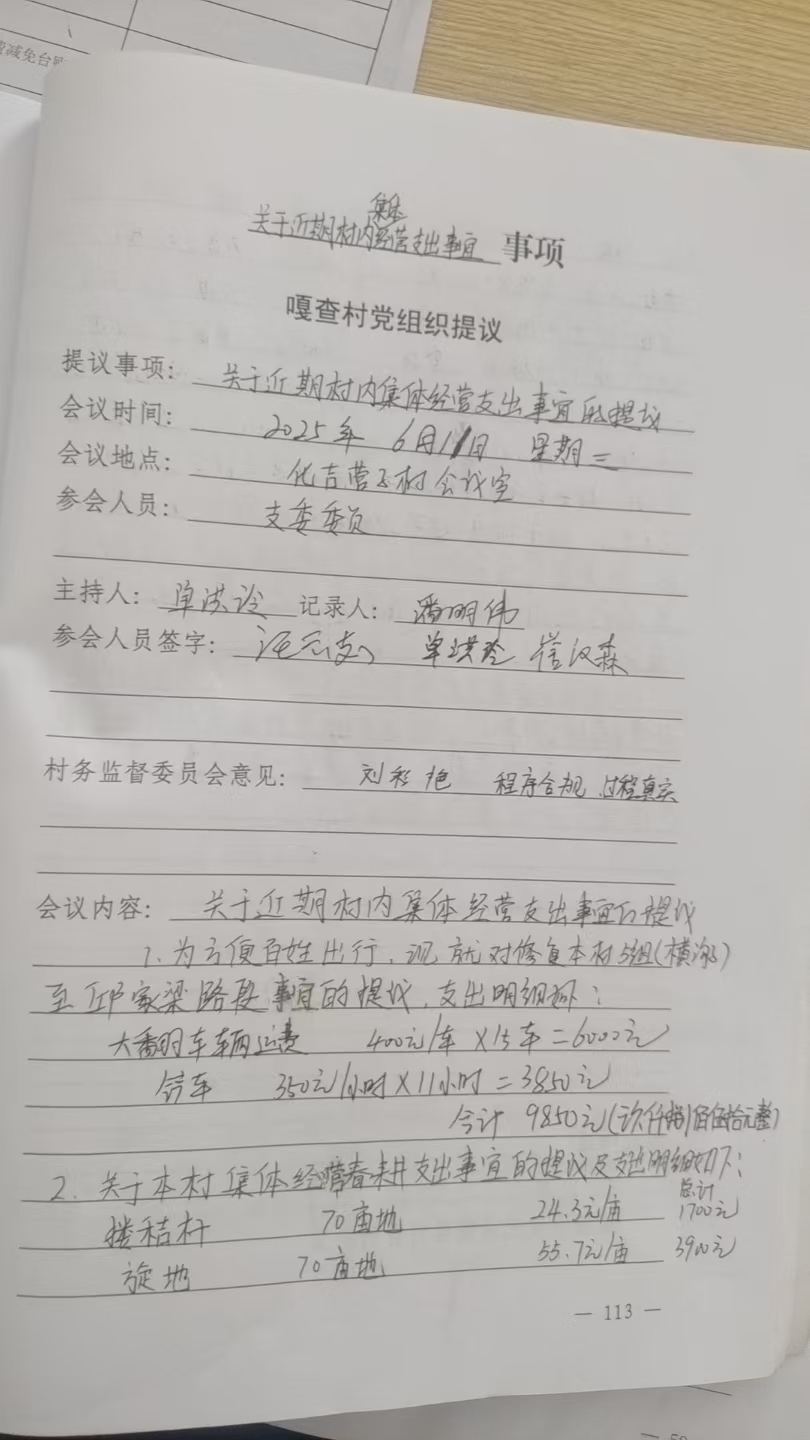 费减免台账
集体
关于近期村内经营支出事宜 事项
嘎查村党组织提议
提议事项：关于近期村内集体经营支出事宜的提议
会议时间：2025年 6月11日 星期三
会议地点：化吉营子村会议室
参会人员：支委委员
主持人：单洪玲 记录人：潘明伟
参会人员签字：单洪玲
村务监督委员会意见：刘彩艳 程序合规 过程真实
会议内容：关于近期村内集体经营支出事宜的提议
1、为方便百姓出行，现就对修复本村5组
至邱家梁路段事宜的提议，支出明细
大翻斗车辆运费 400元/车 ×15车=6000元
铲车 350元/小时×11小时=3850元
合计 9850元(玖仟捌佰伍拾元整)
2、关于本村集体经营春耕支出事宜的提议及支出明细如下：
总计
搂秸杆 70亩地 24.3元/亩 1700元
旋地 70亩地 55.7元/亩 3900元
— 113 —